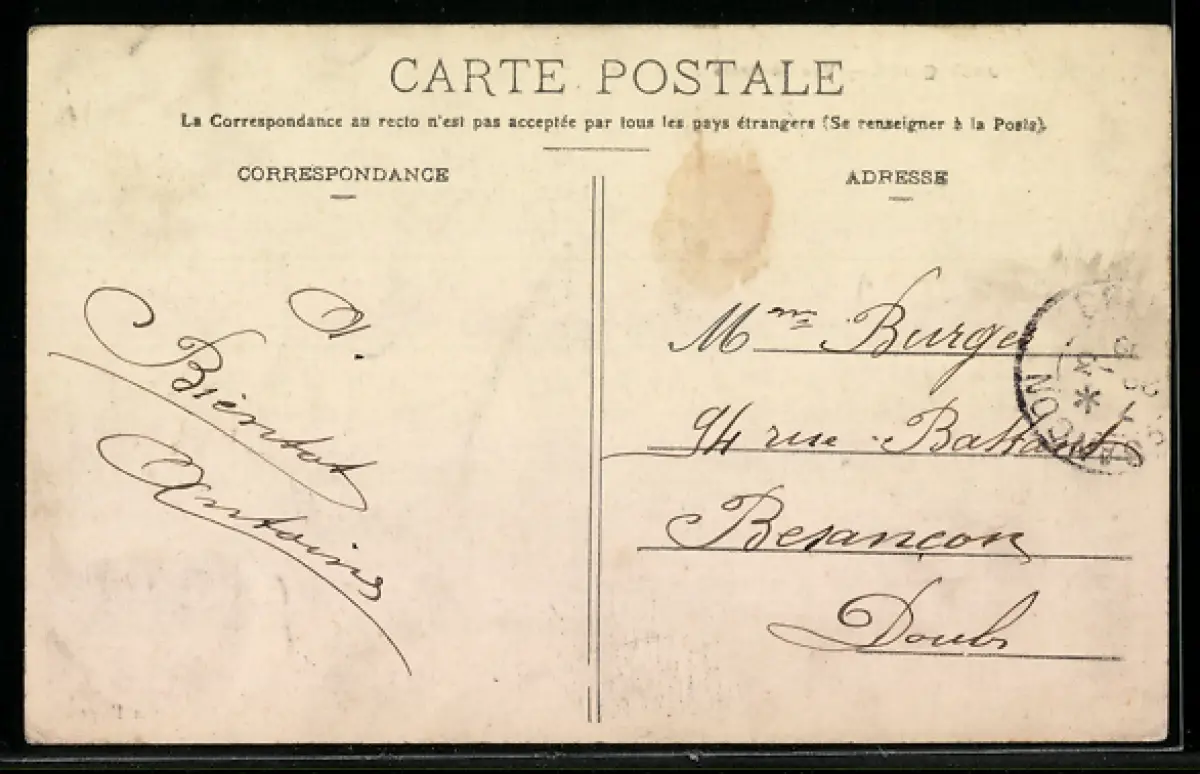 CARTE POSTALE
La Correspondance au recto n'est pas acceptée par tous les pays étrangers (Se renseigner à la Poste).
CORRESPONDANCE
A.
Bientot
Antoine
ADRESSE
Mme Burge
94 rue Battant
Besançon
Doubs